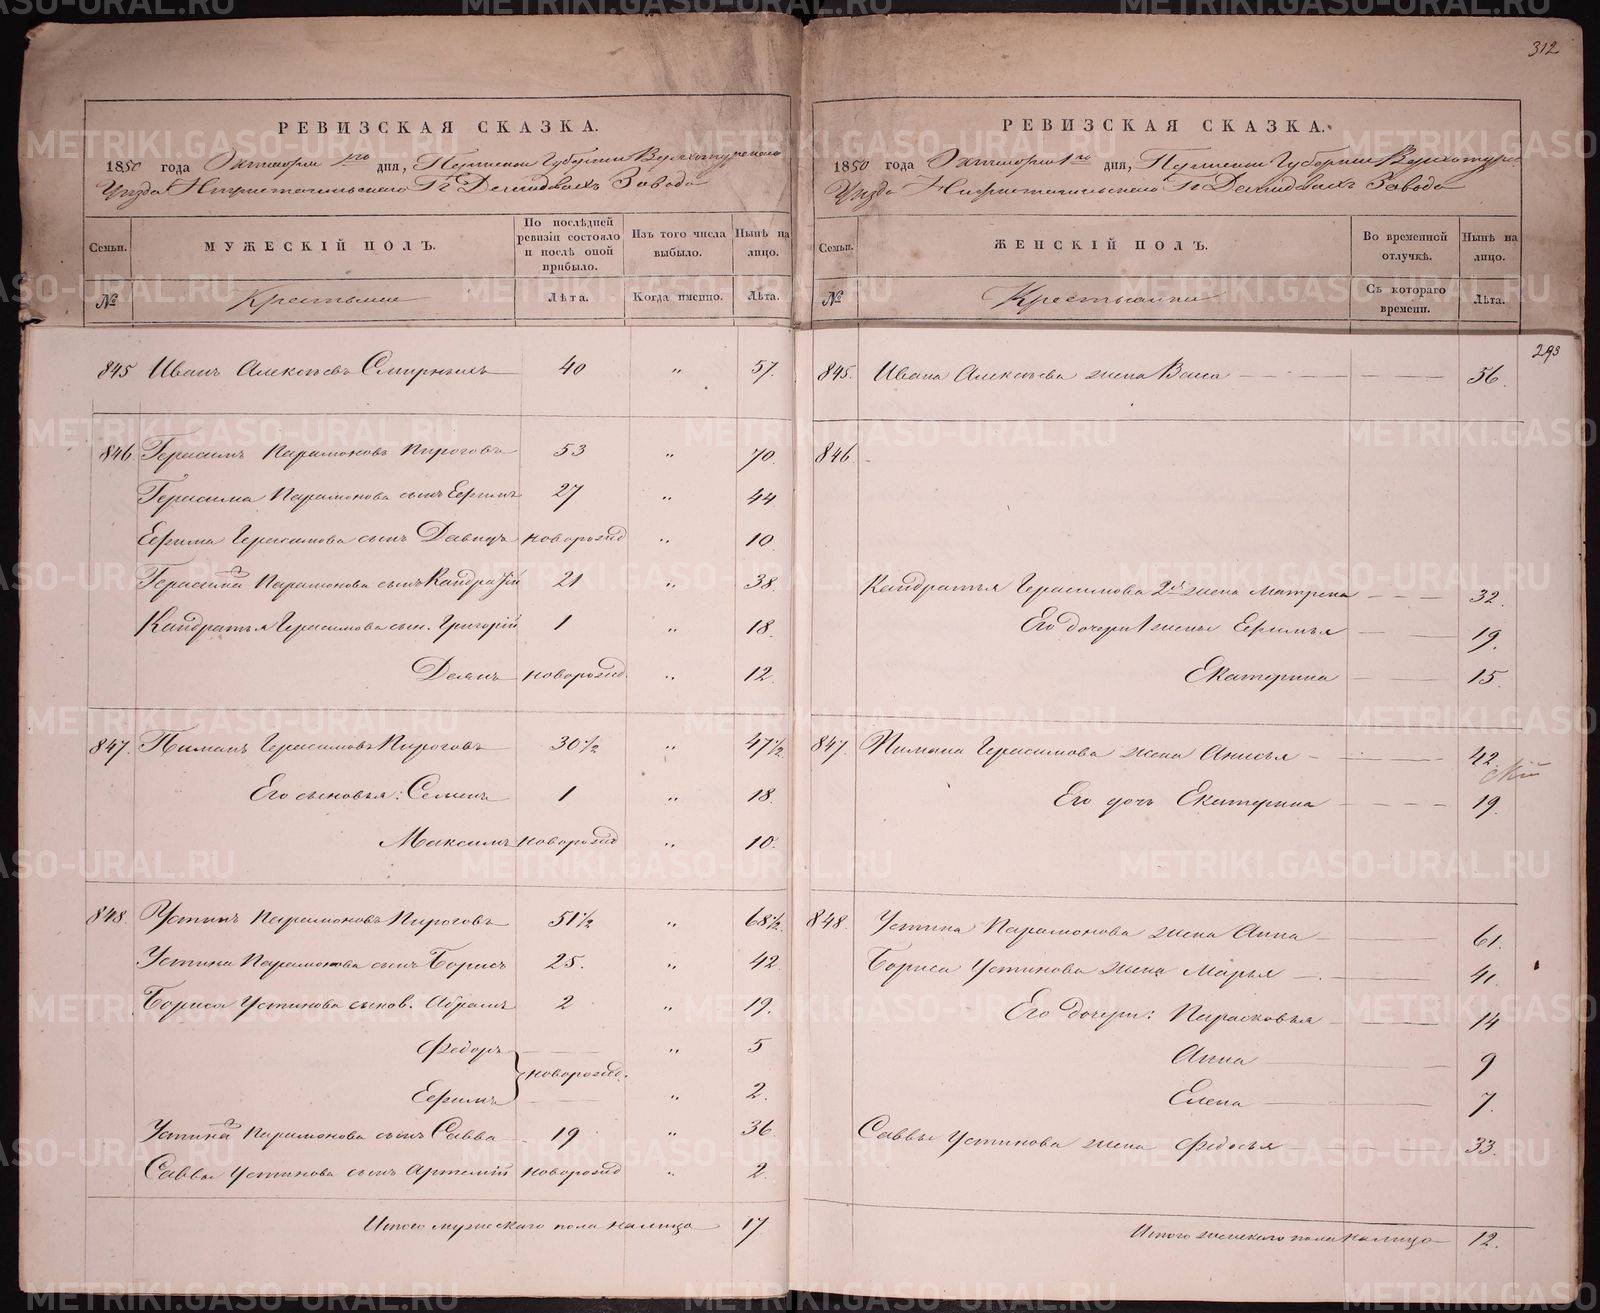 312
РЕВИЗСКАЯ СКАЗКА.
1850 года Октября 1го дня, Пермской Губернии Верхотурскаго
Уѣзда Нижнетагильскаго Гг Демидовыхъ Завода
Семьи.
МУЖЕСКІЙ ПОЛЪ.
По послѣдней ревизіи состояло и послѣ оной прибыло.
Изъ того числа выбыло.
Нынѣ на лицо.
№
Крестьяне
Лѣта.
Когда именно.
Лѣта.
845 Иванъ Алексѣевъ Смирныхъ 40 „ 57.
846. Герасимъ Парамоновъ Пироговъ 53 „ 70.
Герасима Парамонова сынъ Ефимъ 27 „ 44
Ефима Герасимова сынъ Давидъ новорожд „ 10
Герасима Парамонова сынъ Кандратій 21 „ 38.
Кандратья Герасимова сын. Григорій 1 „ 18.
новорожд. „ 12.
847. Пиманъ Герасимовъ Пироговъ 30½ „ 47½
Его сыновья: Семенъ 1 „ 18.
Максимъ новорожд „ 10.
848. Устинъ Парамоновъ Пироговъ 51½ „ 68½
Устина Парамонова сынъ Борисъ 25. „ 42
Бориса Устинова сынов. Абрамъ 2 „ 19.
Федоръ „ 5
новорожд.
Ефимъ „ 2.
Устина Парамонова сынъ Савва 19 „ 36
Саввы Устинова сынъ Артемій новорожд „ 2.
Итого мужескаго пола налицо 17.
РЕВИЗСКАЯ СКАЗКА.
1850 года Октября 1го дня, Пермской Губерніи Верхотурс.
Уѣзда Нижнетагильскаго Гг Демидовыхъ Завода
Семьи.
ЖЕНСКІЙ ПОЛЪ.
Во временной отлучкѣ.
Нынѣ на лицо.
№
Крестьянки
Съ котораго времени.
Лѣта.
293
845. Ивана Алексѣева жена Васса 56.
846.
Кандратья Герасимова 2я жена Матрена 32.
Его дочери 1 жены Ефимья 19.
Екатерина 15.
847. Пимана Герасимова жена Анисья 42.
Его дочь Екатерина 19.
848. Устина Парамонова жена Анна 61.
Бориса Устинова жена Марья 41.
Его дочери: Парасковья 14
Анна 9
Елена 7.
Саввы Устинова жена Федосья 33.
Итого женскаго пола налицо 12.
METRIKI.GASO-URAL.RU